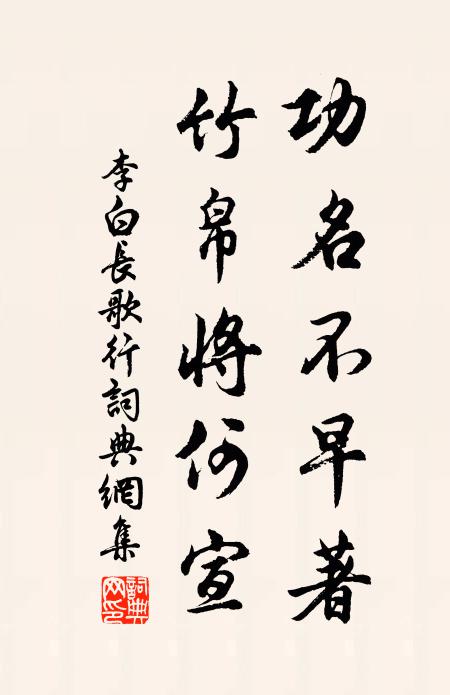 功名不早著
竹帛將何宣
李白長歌行詞典網集
詞典網印